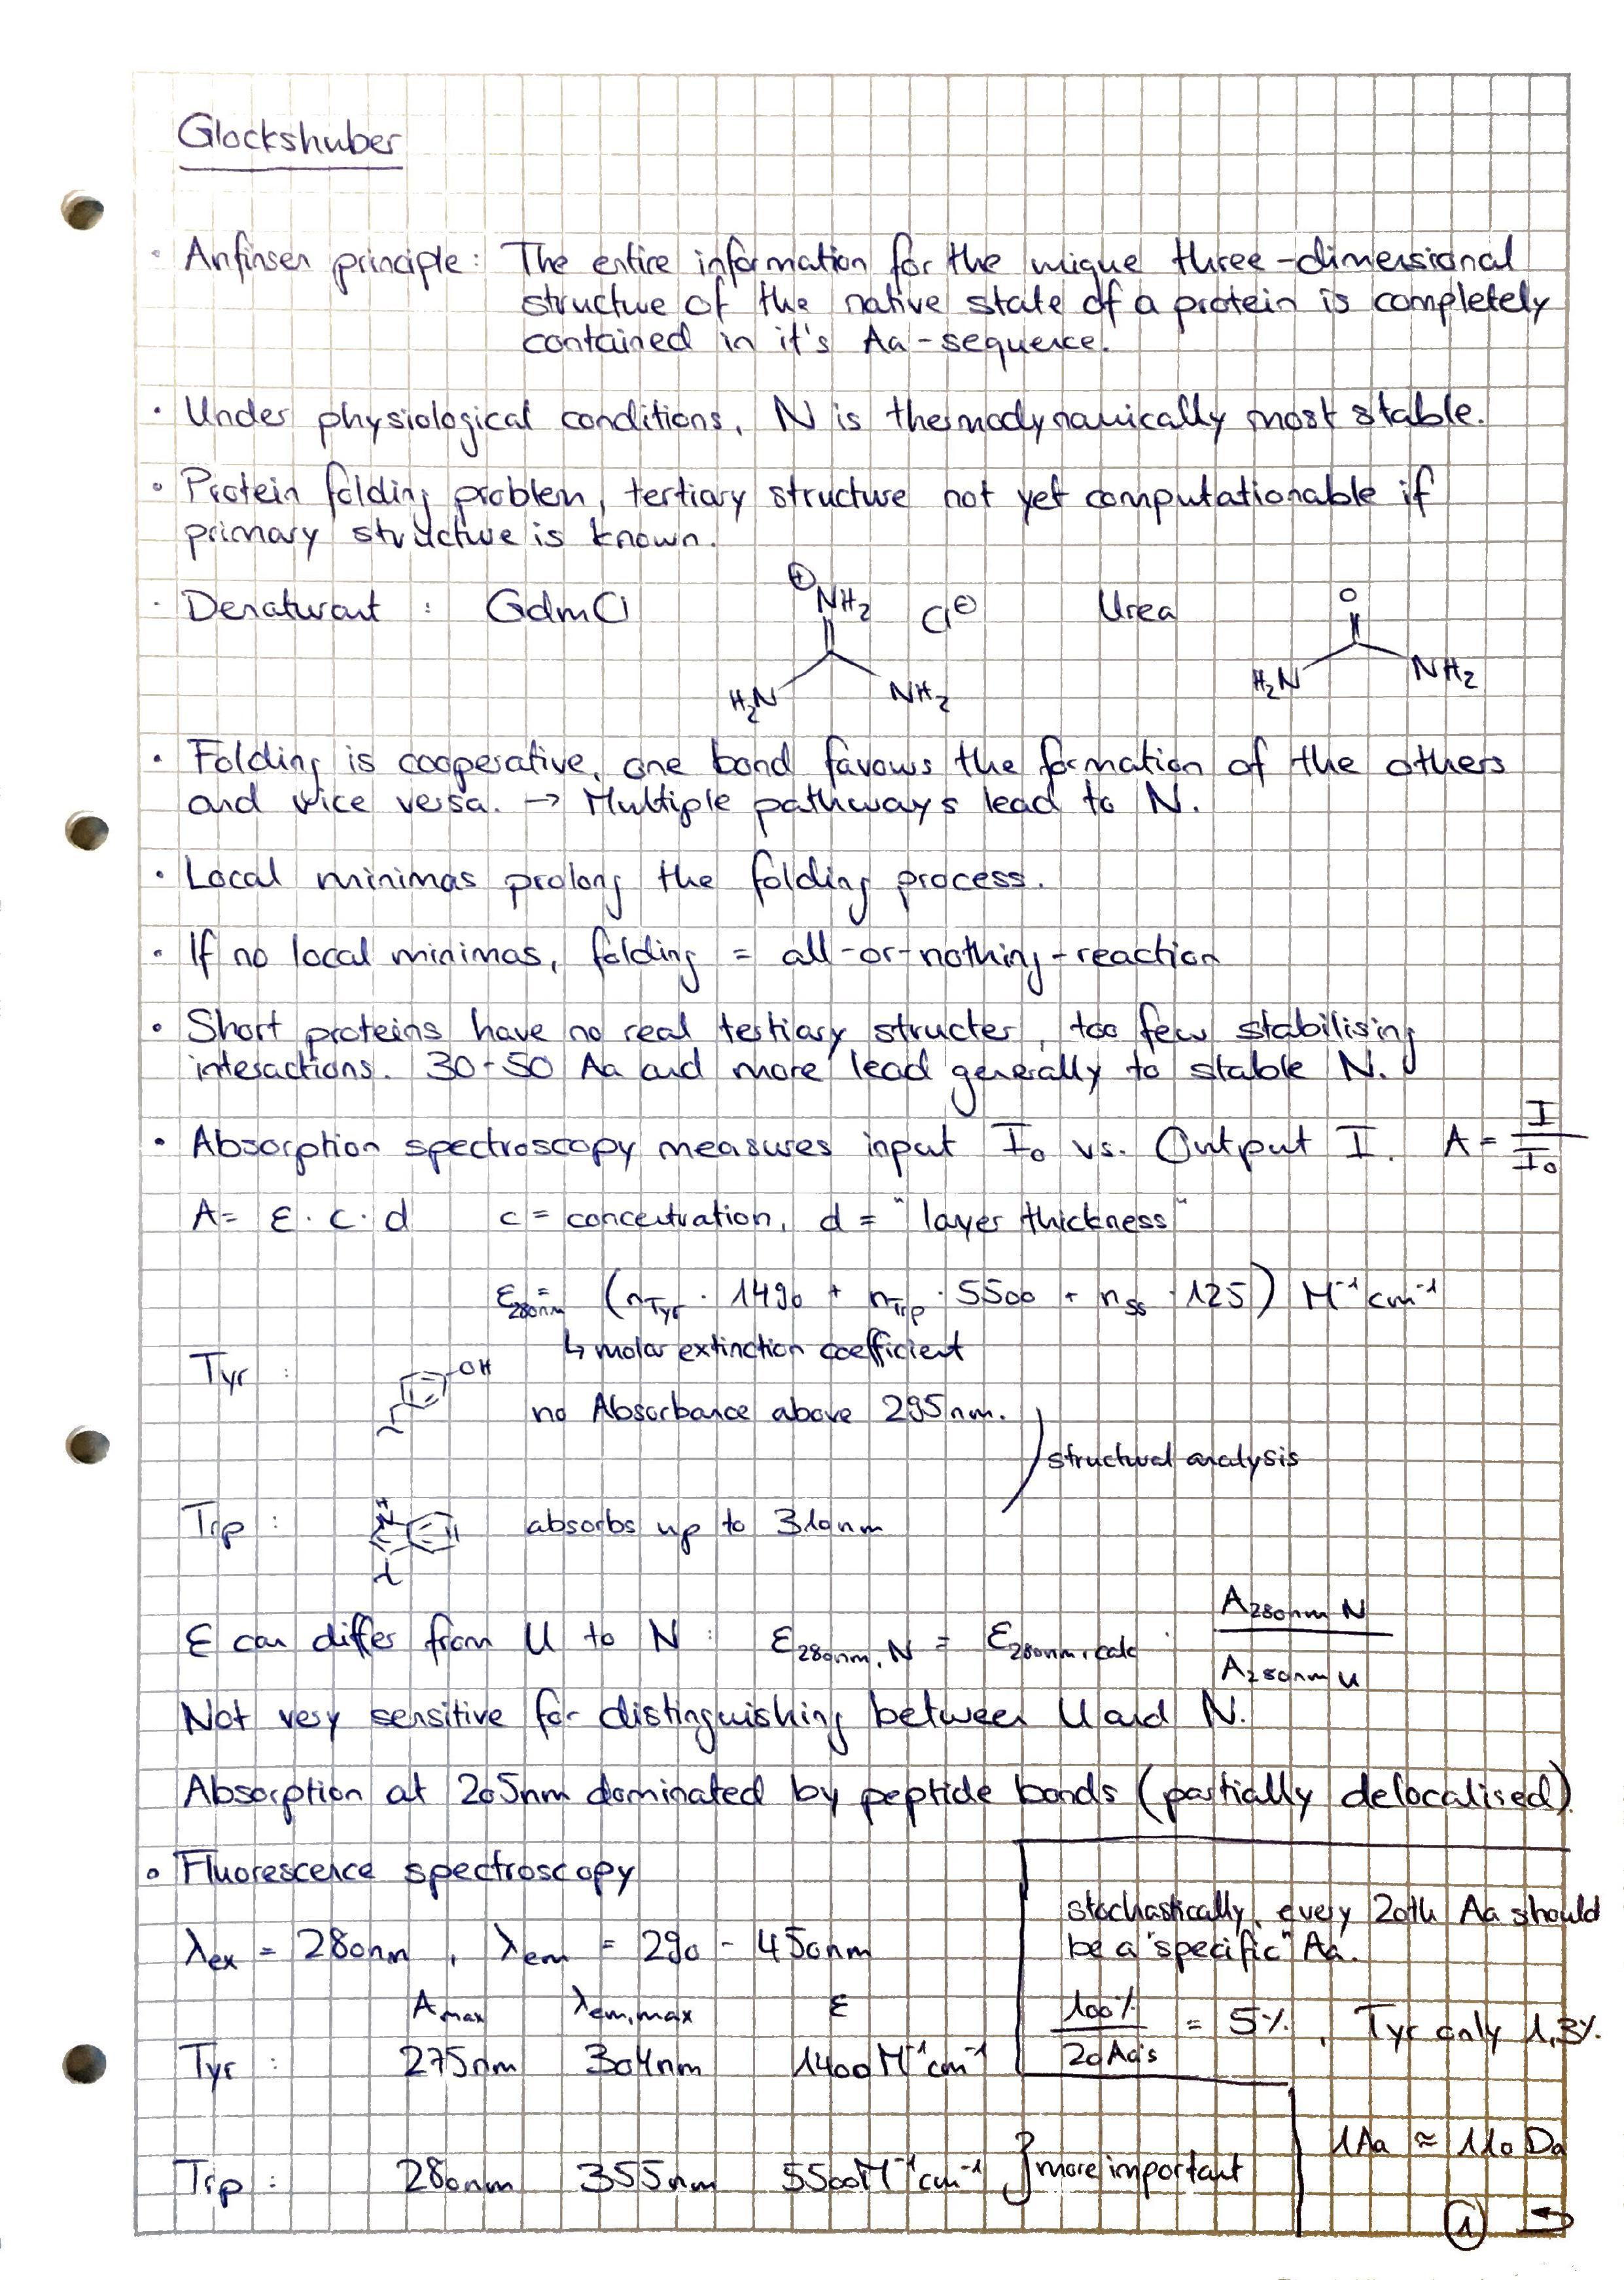 Glockshuber
· Anfinsen principle: The entire information for the unique three-dimensional
structure of the native state of a protein is completely
contained in it's Aa-sequence.
· Under physiological conditions, N is thermodynamically most stable.
· Protein folding problem, tertiary structure not yet computationable if
primary structure is known.
· Denaturant : GdmCl ⊕NH₂ H₂N NH₂ Cl⊖ Urea O H₂N NH₂
· Folding is cooperative, one bond favours the formation of the others
and vice versa. → Multiple pathways lead to N.
· Local minimas prolong the folding process.
· If no local minimas, folding = all-or-nothing-reaction
· Short proteins have no real tertiary structer, too few stabilising
interactions. 30-50 Aa and more lead generally to stable N.
· Absorption spectroscopy measures input I₀ vs. Output I. A = I/I₀
A = ε · c · d c = concentration, d = "layer thickness"
ε280nm = (nTyr · 1490 + nTrp · 5500 + nSS · 125) M⁻¹cm⁻¹
↳ molar extinction coefficient
Tyr : OH
no Absorbance above 295nm.
structural analysis
Trp : N H absorbs up to 310nm
ε can differ from U to N : ε280nm, N = ε280nm, calc · A280nm N / A280nm U
Not very sensitive for distinguishing between U and N.
Absorption at 205nm dominated by peptide bonds (partially delocalised).
· Fluorescence spectroscopy
λex = 280nm , λem = 290 - 450nm
Amax λem,max ε
Tyr : 275nm 304nm 1400 M⁻¹cm⁻¹
Trp : 280nm 355nm 5500 M⁻¹cm⁻¹ } more important
stochastically, every 20th Aa should
be a "specific" Aa.
100% / 20 Aa's = 5% , Tyr only 1,3%.
1Aa ≈ 110 Da
1